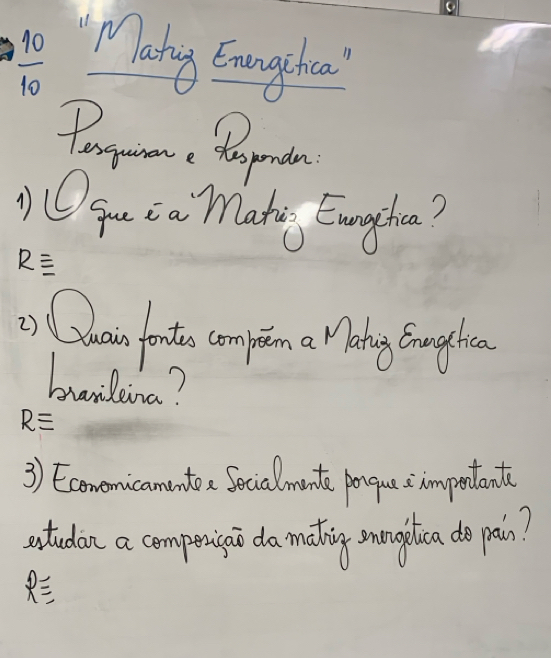 10/10 "Matriz Energética"
Pesquisar e Responder:
1) O que é a Matriz Energética?
R≡
2) Quais fontes compõem a Matriz Energética
brasileira?
R≡
3) Economicamente e Socialmente porque é importante
estudar a composição da matriz energética do país?
R≡